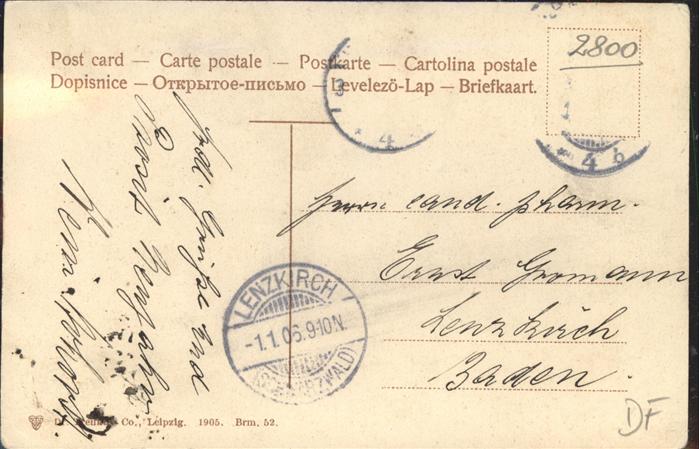 2800
Post card — Carte postale — Postkarte — Cartolina postale
Dopisnice — Открытое-письмо — Levelező-Lap — Briefkaart.
4
4 b
Herrn cand. pharm.
Ernst Gromann
Lenzkirch
Baden.
Frdl. Grüße und
Prosit Neujahr
LENZKIRCH
-1.1.06.9-10N.
(SCHWARZWALD)
Co., Leipzig. 1905. Brm. 52.
DF